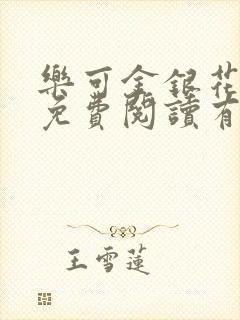 樂可金銀花
免費閱讀有
王雪蓮